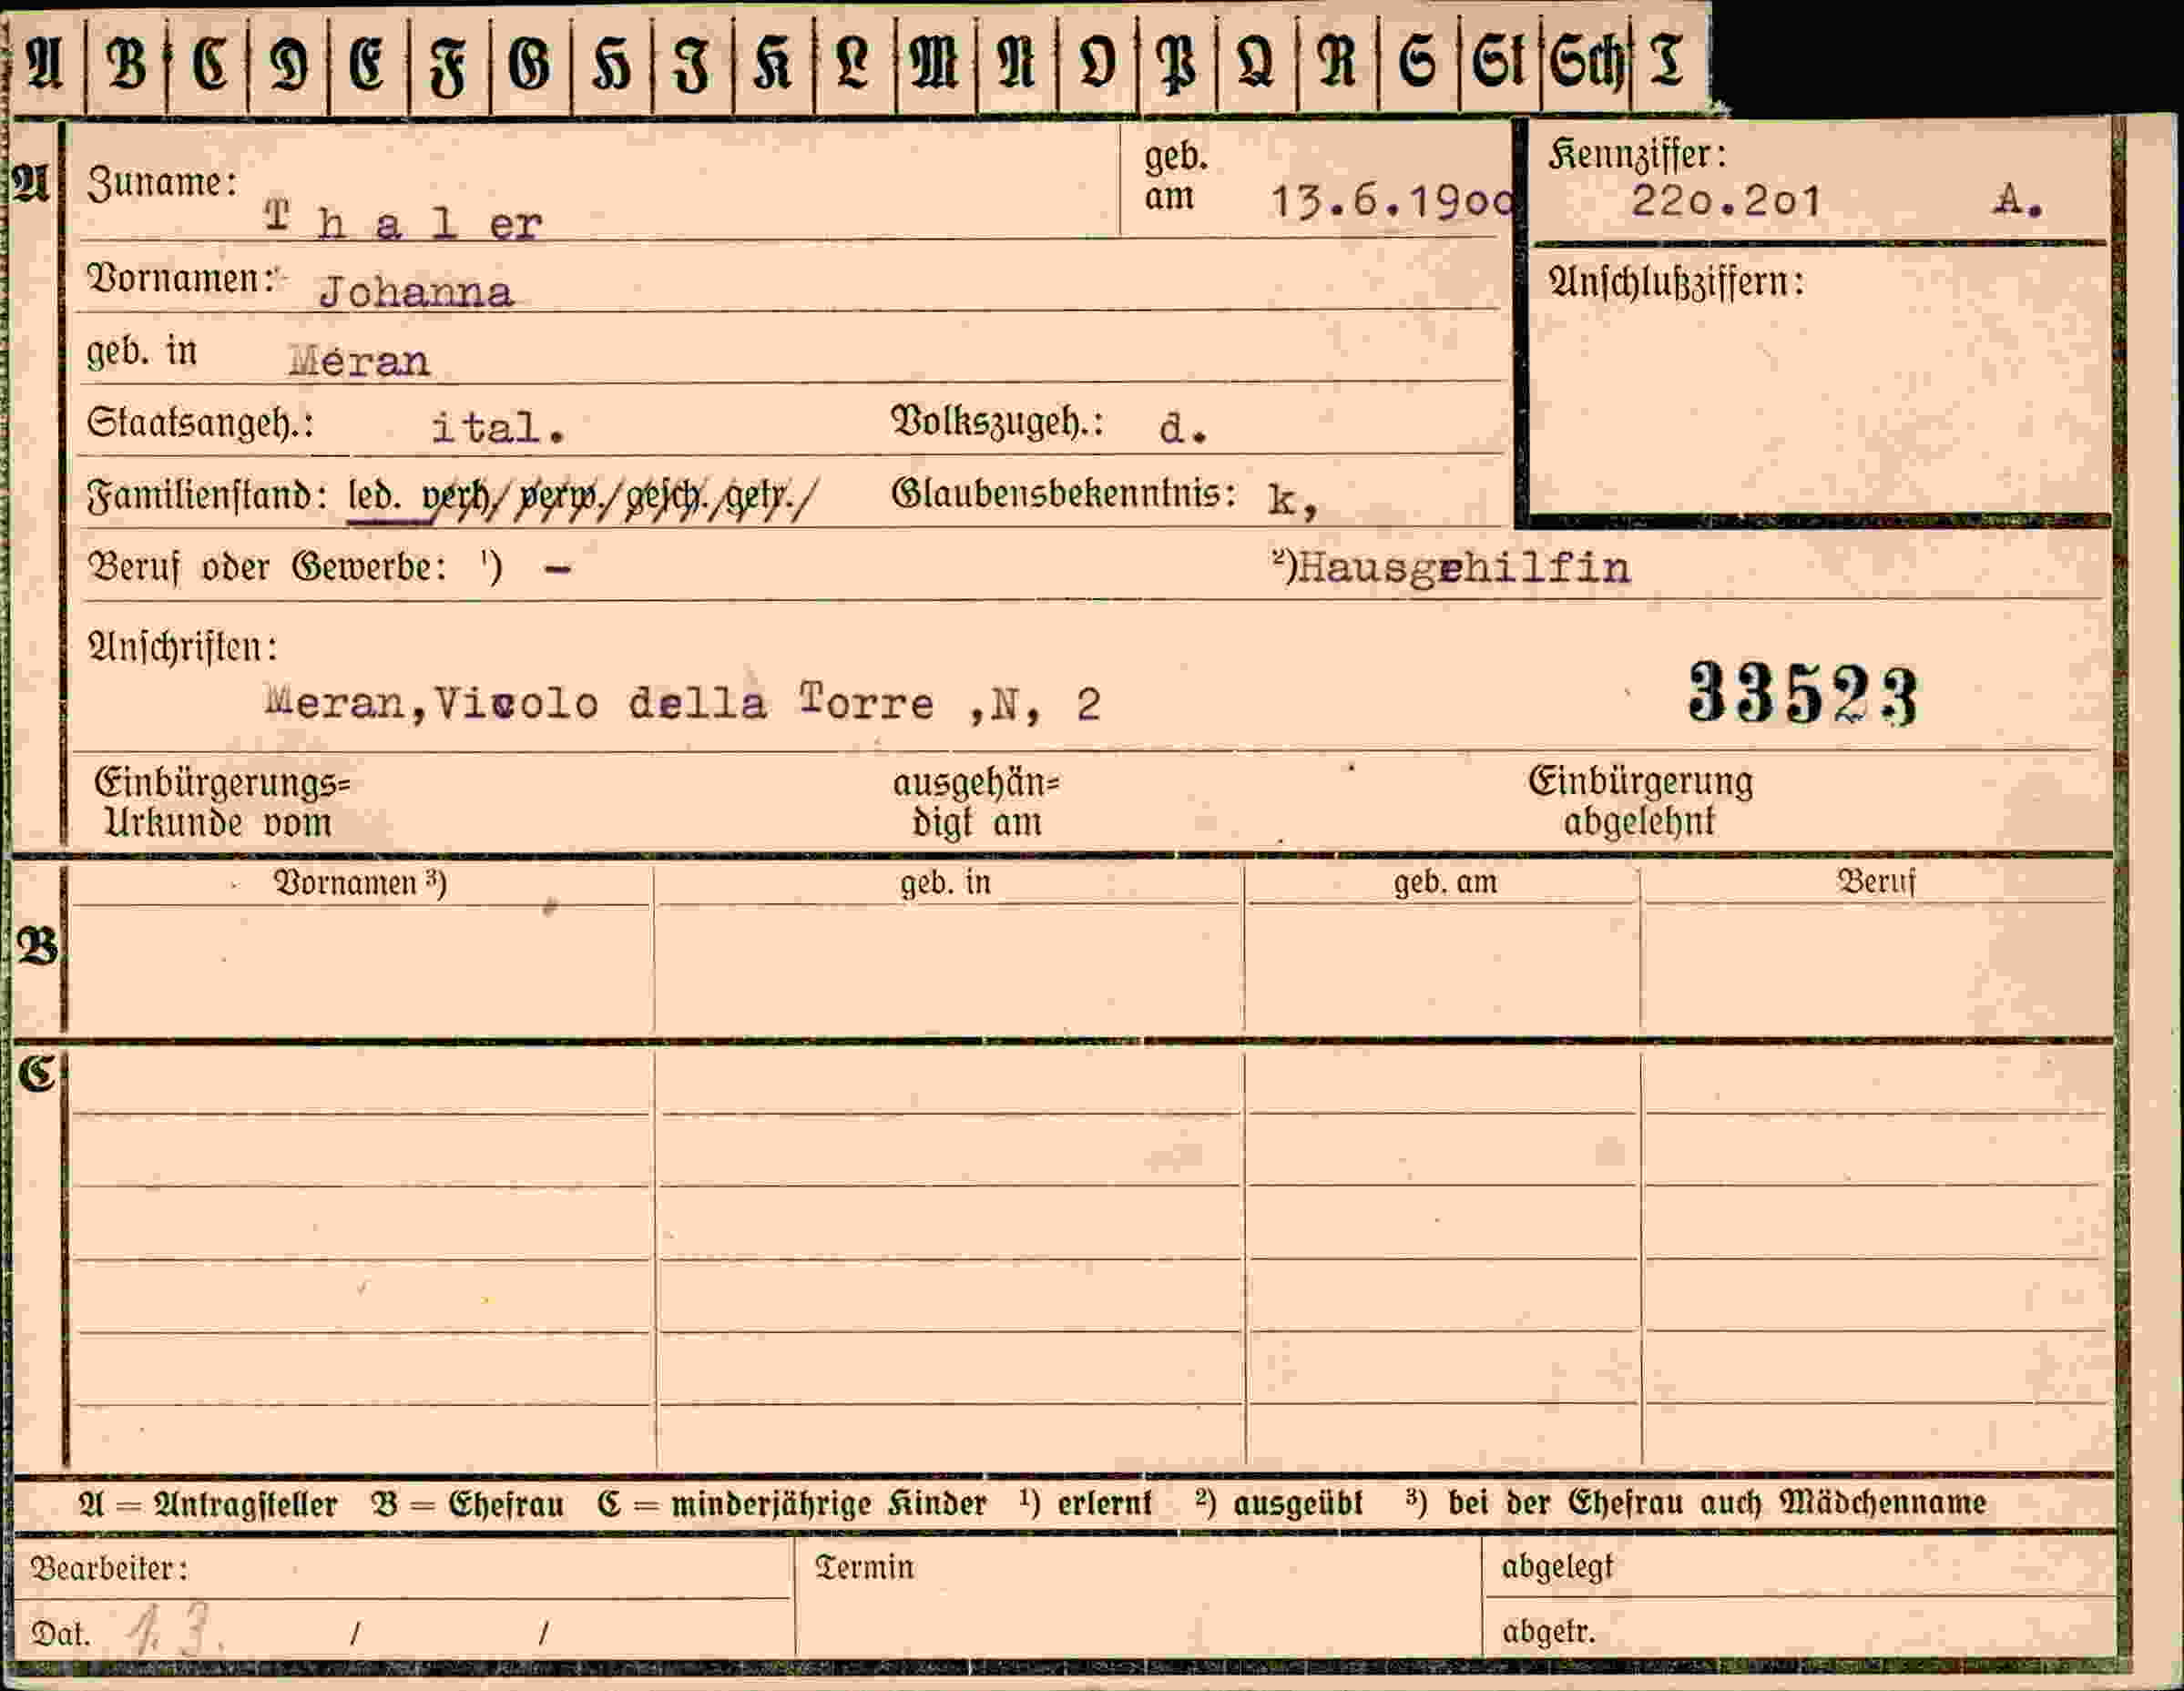 A B C D E F G H I K L M N O P Q R S St Sch T
A
Zuname: Thaler
geb. am 13.6.19oo
Kennziffer: 22o.2o1 A.
Vornamen: Johanna
Anschlußziffern:
geb. in Meran
Staatsangeh.: ital. Volkszugeh.: d.
Familienstand: led. verh/ verw./gesch./getr./ Glaubensbekenntnis: k,
Beruf oder Gewerbe: ¹) - ²)Hausgehilfin
Anschriften:
Meran,Vicolo della Torre ,N, 2
33523
Einbürgerungs=
Urkunde vom
ausgehän=
digt am
Einbürgerung
abgelehnt
Vornamen ³) geb. in geb. am Beruf
B
C
A = Antragsteller B = Ehefrau C = minderjährige Kinder ¹) erlernt ²) ausgeübt ³) bei der Ehefrau auch Mädchenname
Bearbeiter: Termin abgelegt
Dat. 1.3. / / abgetr.